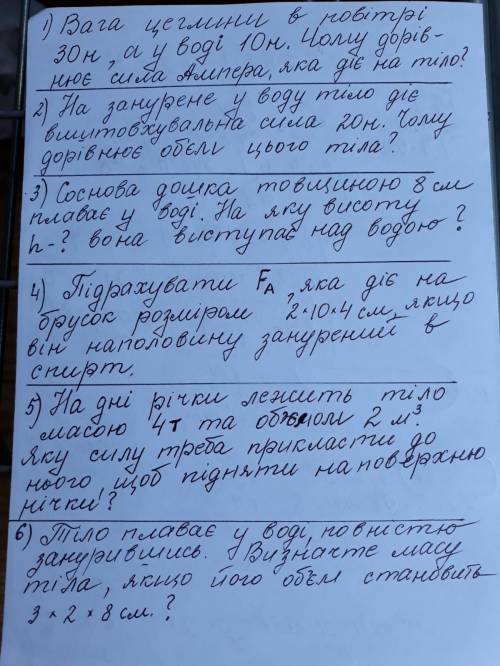 1) Вага цеглини в повітрі
30н, а у воді 10н. Чому дорів-
нює сила Ампера, яка діє на тіло?
2) На занурене у воду тіло діє
виштовхувальна сила 20н. Чому
дорівнює обєм цього тіла?
3) Соснова дошка товщиною 8 см
плаває у воді. На яку висоту
h-? вона виступає над водою?
4) Підрахувати FA, яка діє на
брусок розміром 2×10×4 см, якщо
він наполовину занурений в
спирт.
5) На дні річки лежить тіло
масою 4т та обємом 2 м³.
Яку силу треба прикласти до
нього, щоб підняти на поверхню
річки?
6) Тіло плаває у воді, повністю
занурившись. Визначте масу
тіла, якщо його обєм становить
3 × 2 × 8 см.?